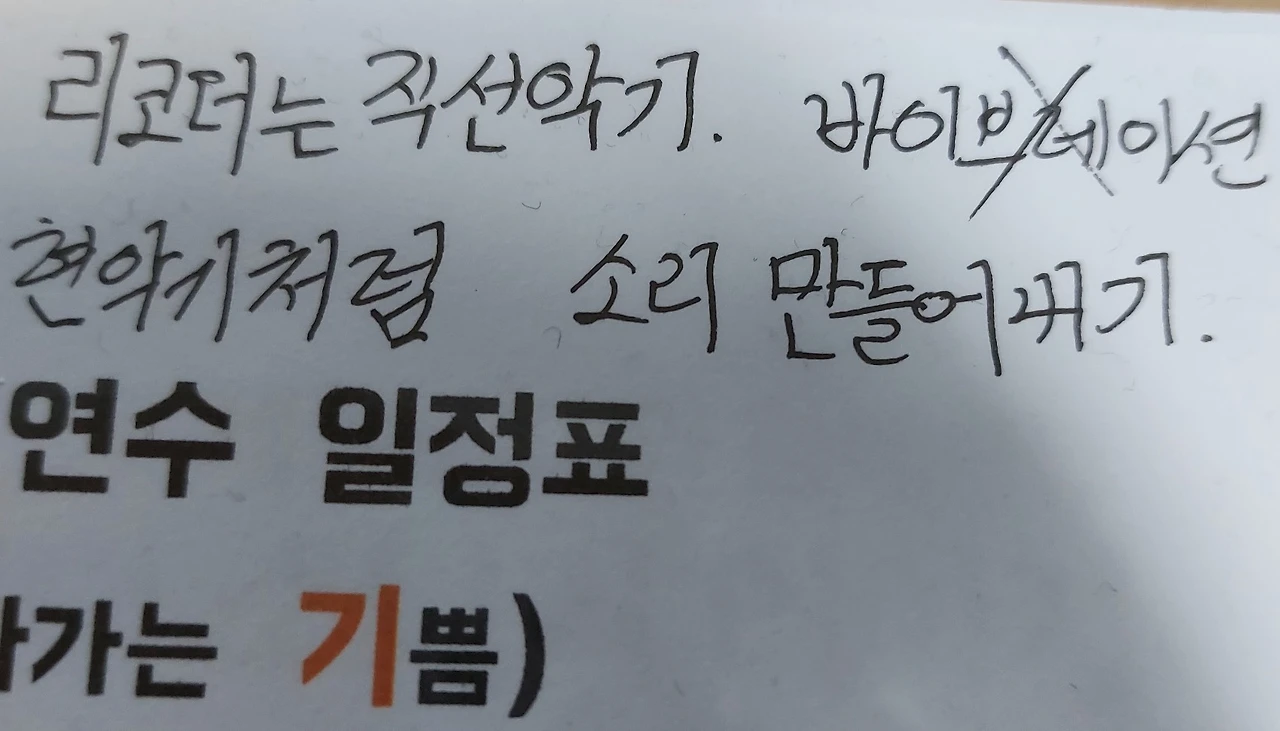 리코더는 직선악기. 바이브레이션
현악기처럼 소리 만들어내기.
연수 일정표
가는 기쁨)